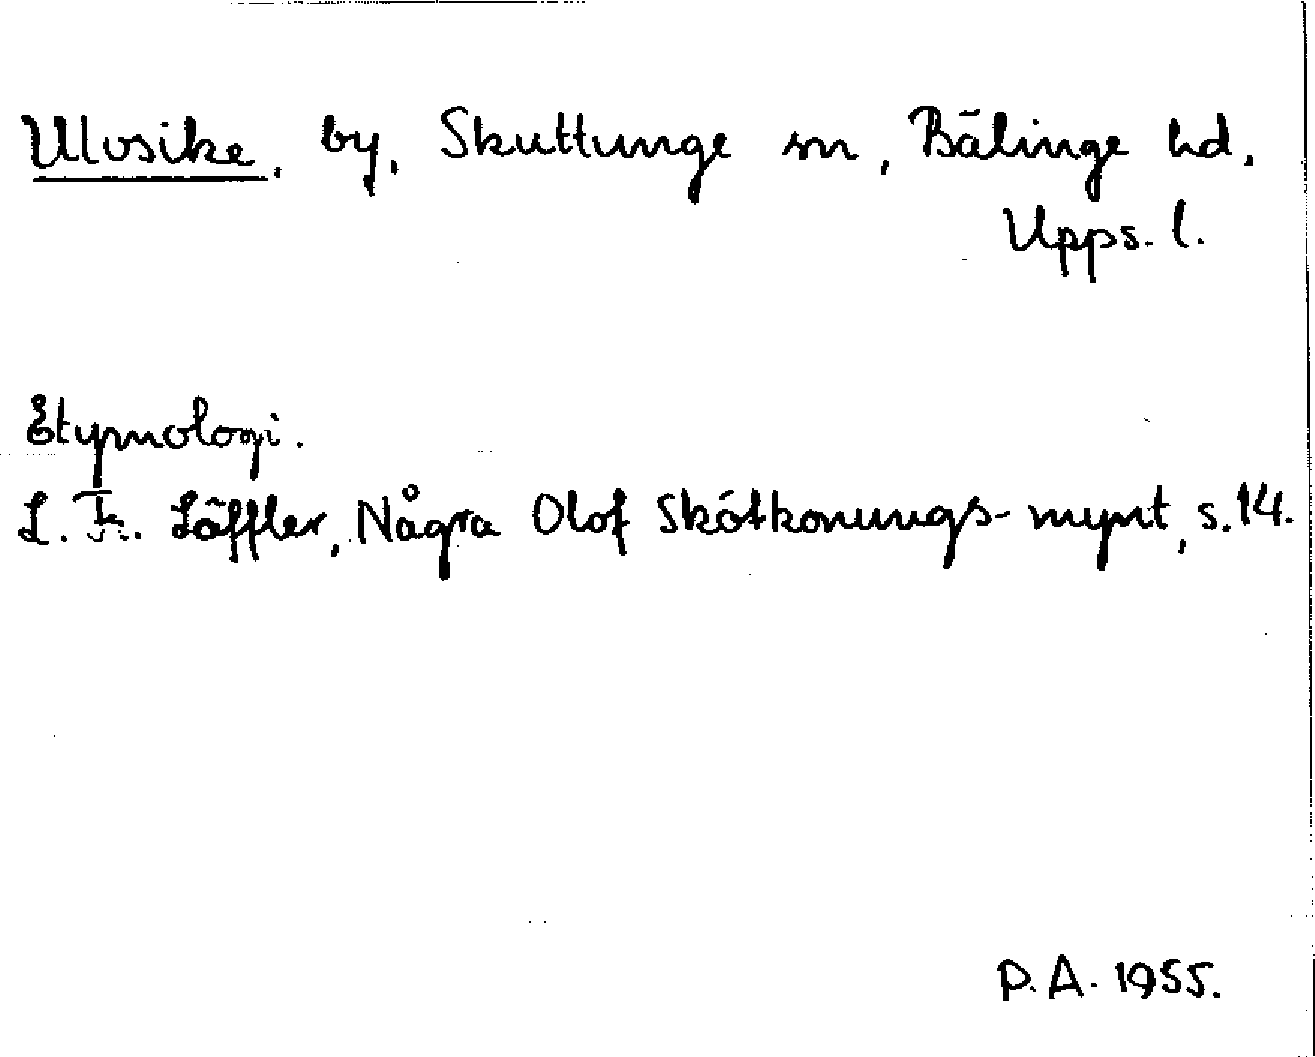 Ulvsike, by, Skuttunge sn, Bälinge hd,
Upps. l.
Etymologi.
L. Fr. Läffler, Några Olof Skötkonungs-mynt, s. 14.
P. A. 1955.